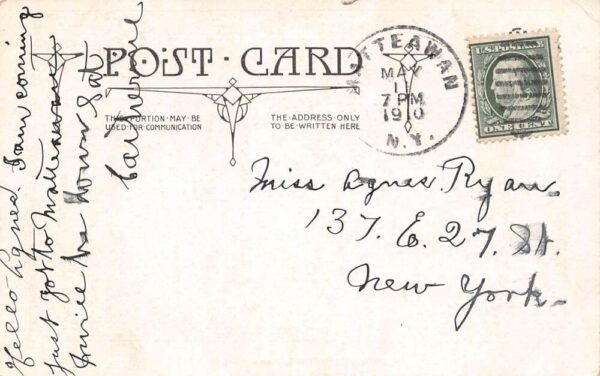 POST CARD
THIS PORTION MAY BE
USED FOR COMMUNICATION
THE ADDRESS ONLY
TO BE WRITTEN HERE
MATTEAWAN
MAY
1
7 PM
1910
N.Y.
U.S. POSTAGE
ONE CENT
Miss Agnes Ryan
137. E. 27. St.
New York.
Hello Agnes. I am coming
Just got to Matteawan
I will be down Sat
Catherine